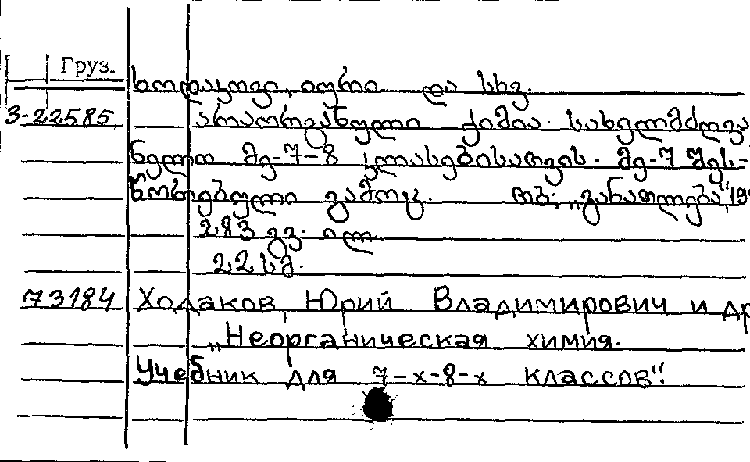 Груз.
ხოდაკოვი, იური და სხვ.
3-22585 არაორგანული ქიმია. სახელმძღვა
ნელო მე-7-8 კლასებისათვის. მე-7 შეს-
წორებული გამოც. თბ., „განათლება",19
283 გვ. ილ.
22 სმ.
73184 Ходаков, Юрий Владимирович и др
„Неорганическая химия.
Учебник для 7-х-8-х классов".